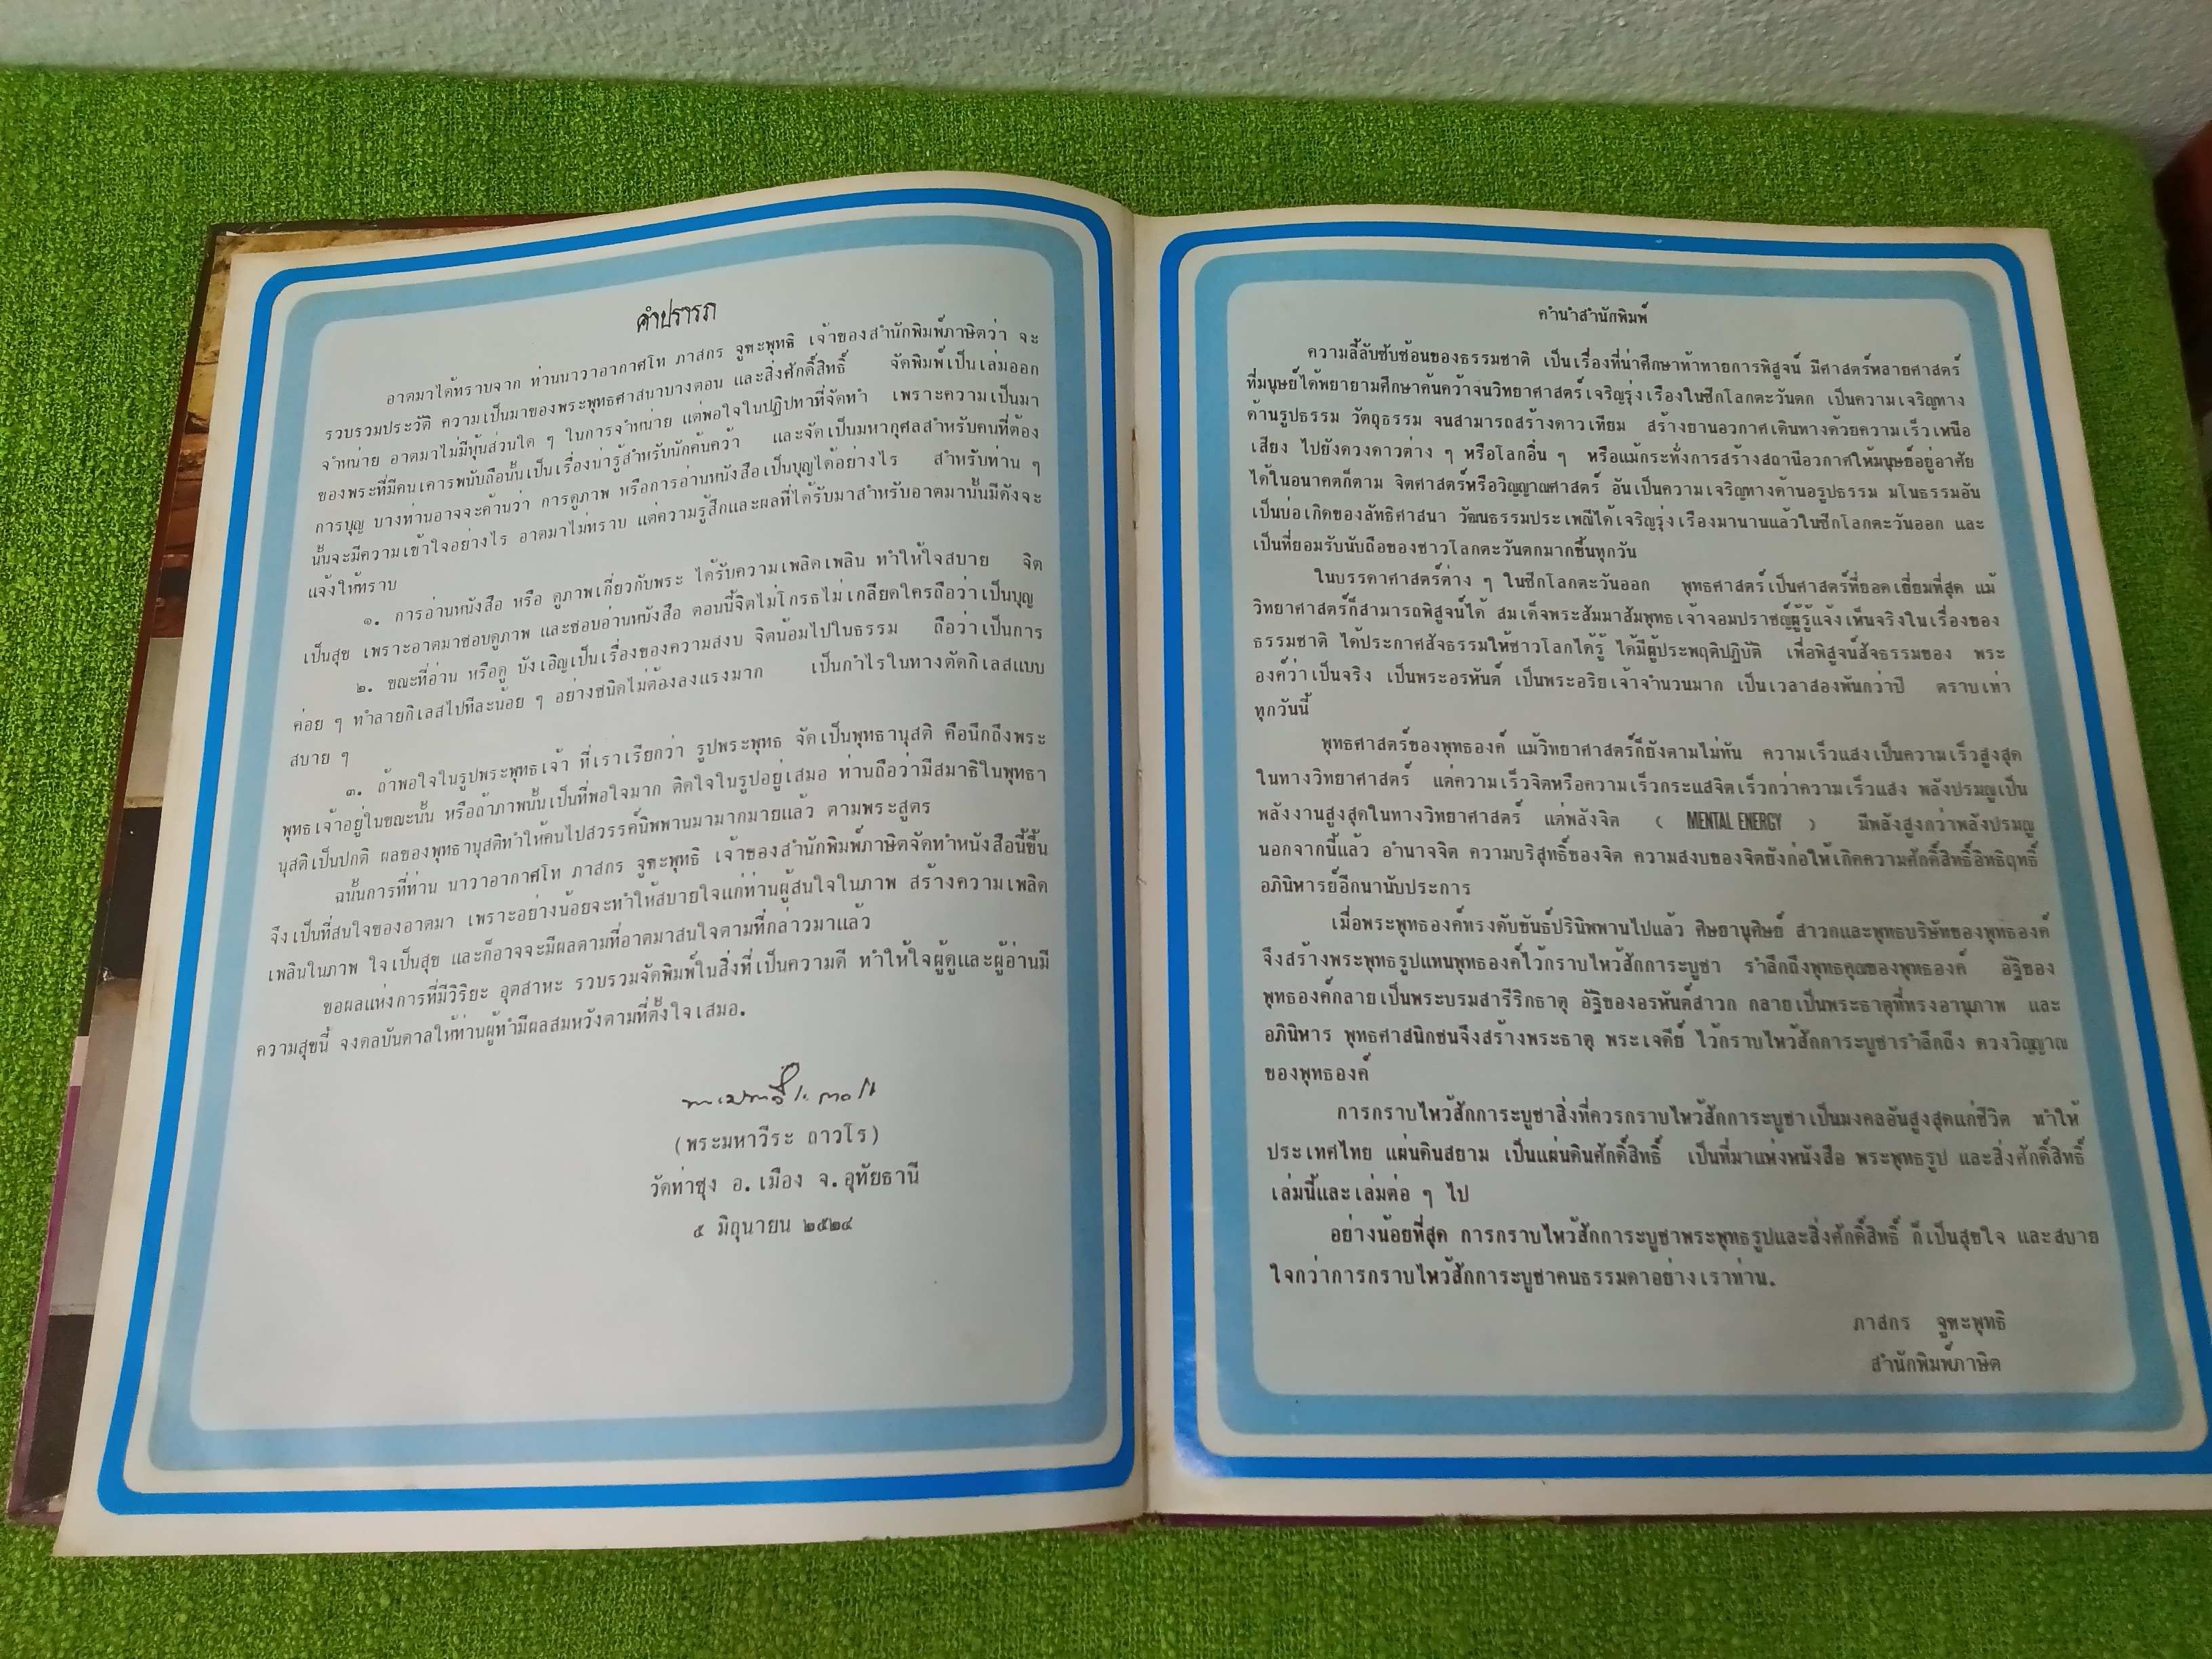 คำปรารภ
อาตมาได้ทราบจาก ท่านนาวาอากาศโท ภาสกร จูฑะพุทธิ เจ้าของสำนักพิมพ์ภาษิตว่า จะ
รวบรวมประวัติ ความเป็นมาของพระพุทธศาสนาบางตอน และสิ่งศักดิ์สิทธิ์ จัดพิมพ์เป็นเล่มออก
จำหน่าย อาตมาไม่มีหุ้นส่วนใด ๆ ในการจำหน่าย แต่พอใจในปฏิปทาที่จัดทำ เพราะความเป็นมา
ของพระที่มีคนเคารพนับถือนั้นเป็นเรื่องน่ารู้สำหรับนักค้นคว้า และจัดเป็นมหากุศลสำหรับคนที่ต้อง
การบุญ บางท่านอาจจะค้านว่า การดูภาพ หรือการอ่านหนังสือเป็นบุญได้อย่างไร สำหรับท่าน ๆ
นั้นจะมีความเข้าใจอย่างไร อาตมาไม่ทราบ แต่ความรู้สึกและผลที่ได้รับมาสำหรับอาตมานั้นมีดังจะ
แจ้งให้ทราบ
๑. การอ่านหนังสือ หรือ ดูภาพเกี่ยวกับพระ ได้รับความเพลิดเพลิน ทำให้ใจสบาย จิต
เป็นสุข เพราะอาตมาชอบดูภาพ และชอบอ่านหนังสือ ตอนนี้จิตไม่โกรธไม่เกลียดใครถือว่าเป็นบุญ
๒. ขณะที่อ่าน หรือดู บังเอิญเป็นเรื่องของความสงบ จิตน้อมไปในธรรม ถือว่าเป็นการ
ค่อย ๆ ทำลายกิเลสไปทีละน้อย ๆ อย่างชนิดไม่ต้องลงแรงมาก เป็นกำไรในทางตัดกิเลสแบบ
สบาย ๆ
๓. ถ้าพอใจในรูปพระพุทธเจ้า ที่เราเรียกว่า รูปพระพุทธ จัดเป็นพุทธานุสติ คือนึกถึงพระ
พุทธเจ้าอยู่ในขณะนั้น หรือถ้าภาพนั้นเป็นที่พอใจมาก ติดใจในรูปอยู่เสมอ ท่านถือว่ามีสมาธิในพุทธา
นุสติเป็นปกติ ผลของพุทธานุสติทำให้คนไปสวรรค์นิพพานมามากมายแล้ว ตามพระสูตร
ฉนั้นการที่ท่าน นาวาอากาศโท ภาสกร จูฑะพุทธิ เจ้าของสำนักพิมพ์ภาษิตจัดทำหนังสือนี้ขึ้น
จึงเป็นที่สนใจของอาตมา เพราะอย่างน้อยจะทำให้สบายใจแก่ท่านผู้สนใจในภาพ สร้างความเพลิด
เพลินในภาพ ใจเป็นสุข และก็อาจจะมีผลตามที่อาตมาสนใจตามที่กล่าวมาแล้ว
ขอผลแห่งการที่มีวิริยะ อุตสาหะ รวบรวมจัดพิมพ์ในสิ่งที่เป็นความดี ทำให้ใจผู้ดูและผู้อ่านมี
ความสุขนี้ จงดลบันดาลให้ท่านผู้ทำมีผลสมหวังตามที่ตั้งใจเสมอ.
(พระมหาวีระ ถาวโร)
วัดท่าซุง อ.เมือง จ.อุทัยธานี
๕ มิถุนายน ๒๕๒๔
คำนำสำนักพิมพ์
ความลี้ลับซับซ้อนของธรรมชาติ เป็นเรื่องที่น่าศึกษาท้าทายการพิสูจน์ มีศาสตร์หลายศาสตร์
ที่มนุษย์ได้พยายามศึกษาค้นคว้าจนวิทยาศาสตร์เจริญรุ่งเรืองในซีกโลกตะวันตก เป็นความเจริญทาง
ด้านรูปธรรม วัตถุธรรม จนสามารถสร้างดาวเทียม สร้างยานอวกาศเดินทางด้วยความเร็วเหนือ
เสียง ไปยังดวงดาวต่าง ๆ หรือโลกอื่น ๆ หรือแม้กระทั่งการสร้างสถานีอวกาศให้มนุษย์อยู่อาศัย
ได้ในอนาคตก็ตาม จิตศาสตร์หรือวิญญาณศาสตร์ อันเป็นความเจริญทางด้านอรูปธรรม มโนธรรมอัน
เป็นบ่อเกิดของลัทธิศาสนา วัฒนธรรมประเพณีได้เจริญรุ่งเรืองมานานแล้วในซีกโลกตะวันออก และ
เป็นที่ยอมรับนับถือของชาวโลกตะวันตกมากขึ้นทุกวัน
ในบรรดาศาสตร์ต่าง ๆ ในซีกโลกตะวันออก พุทธศาสตร์เป็นศาสตร์ที่ยอดเยี่ยมที่สุด แม้
วิทยาศาสตร์ก็สามารถพิสูจน์ได้ สมเด็จพระสัมมาสัมพุทธเจ้าจอมปราชญ์ผู้รู้แจ้งเห็นจริงในเรื่องของ
ธรรมชาติ ได้ประกาศสัจธรรมให้ชาวโลกได้รู้ ได้มีผู้ประพฤติปฏิบัติ เพื่อพิสูจน์สัจธรรมของ พระ
องค์ว่าเป็นจริง เป็นพระอรหันต์ เป็นพระอริยเจ้าจำนวนมาก เป็นเวลาสองพันกว่าปี ตราบเท่า
ทุกวันนี้
พุทธศาสตร์ของพุทธองค์ แม้วิทยาศาสตร์ก็ยังตามไม่ทัน ความเร็วแสงเป็นความเร็วสูงสุด
ในทางวิทยาศาสตร์ แต่ความเร็วจิตหรือความเร็วกระแสจิตเร็วกว่าความเร็วแสง พลังปรมณูเป็น
พลังงานสูงสุดในทางวิทยาศาสตร์ แต่พลังจิต ( MENTAL ENERGY ) มีพลังสูงกว่าพลังปรมณู
นอกจากนี้แล้ว อำนาจจิต ความบริสุทธิ์ของจิต ความสงบของจิตยังก่อให้เกิดความศักดิ์สิทธิ์อิทธิฤทธิ์
อภินิหารย์อีกนานับประการ
เมื่อพระพุทธองค์ทรงดับขันธ์ปรินิพพานไปแล้ว ศิษยานุศิษย์ สาวกและพุทธบริษัทของพุทธองค์
จึงสร้างพระพุทธรูปแทนพุทธองค์ไว้กราบไหว้สักการะบูชา รำลึกถึงพุทธคุณของพุทธองค์ อัฐิของ
พุทธองค์กลายเป็นพระบรมสารีริกธาตุ อัฐิของอรหันต์สาวก กลายเป็นพระธาตุที่ทรงอานุภาพ และ
อภินิหาร พุทธศาสนิกชนจึงสร้างพระธาตุ พระเจดีย์ ไว้กราบไหว้สักการะบูชารำลึกถึง ดวงวิญญาณ
ของพุทธองค์
การกราบไหว้สักการะบูชาสิ่งที่ควรกราบไหว้สักการะบูชาเป็นมงคลอันสูงสุดแก่ชีวิต ทำให้
ประเทศไทย แผ่นดินสยาม เป็นแผ่นดินศักดิ์สิทธิ์ เป็นที่มาแห่งหนังสือ พระพุทธรูป และสิ่งศักดิ์สิทธิ์
เล่มนี้และเล่มต่อ ๆ ไป
อย่างน้อยที่สุด การกราบไหว้สักการะบูชาพระพุทธรูปและสิ่งศักดิ์สิทธิ์ ก็เป็นสุขใจ และสบาย
ใจกว่าการกราบไหว้สักการะบูชาคนธรรมดาอย่างเราท่าน.
ภาสกร จูฑะพุทธิ
สำนักพิมพ์ภาษิต